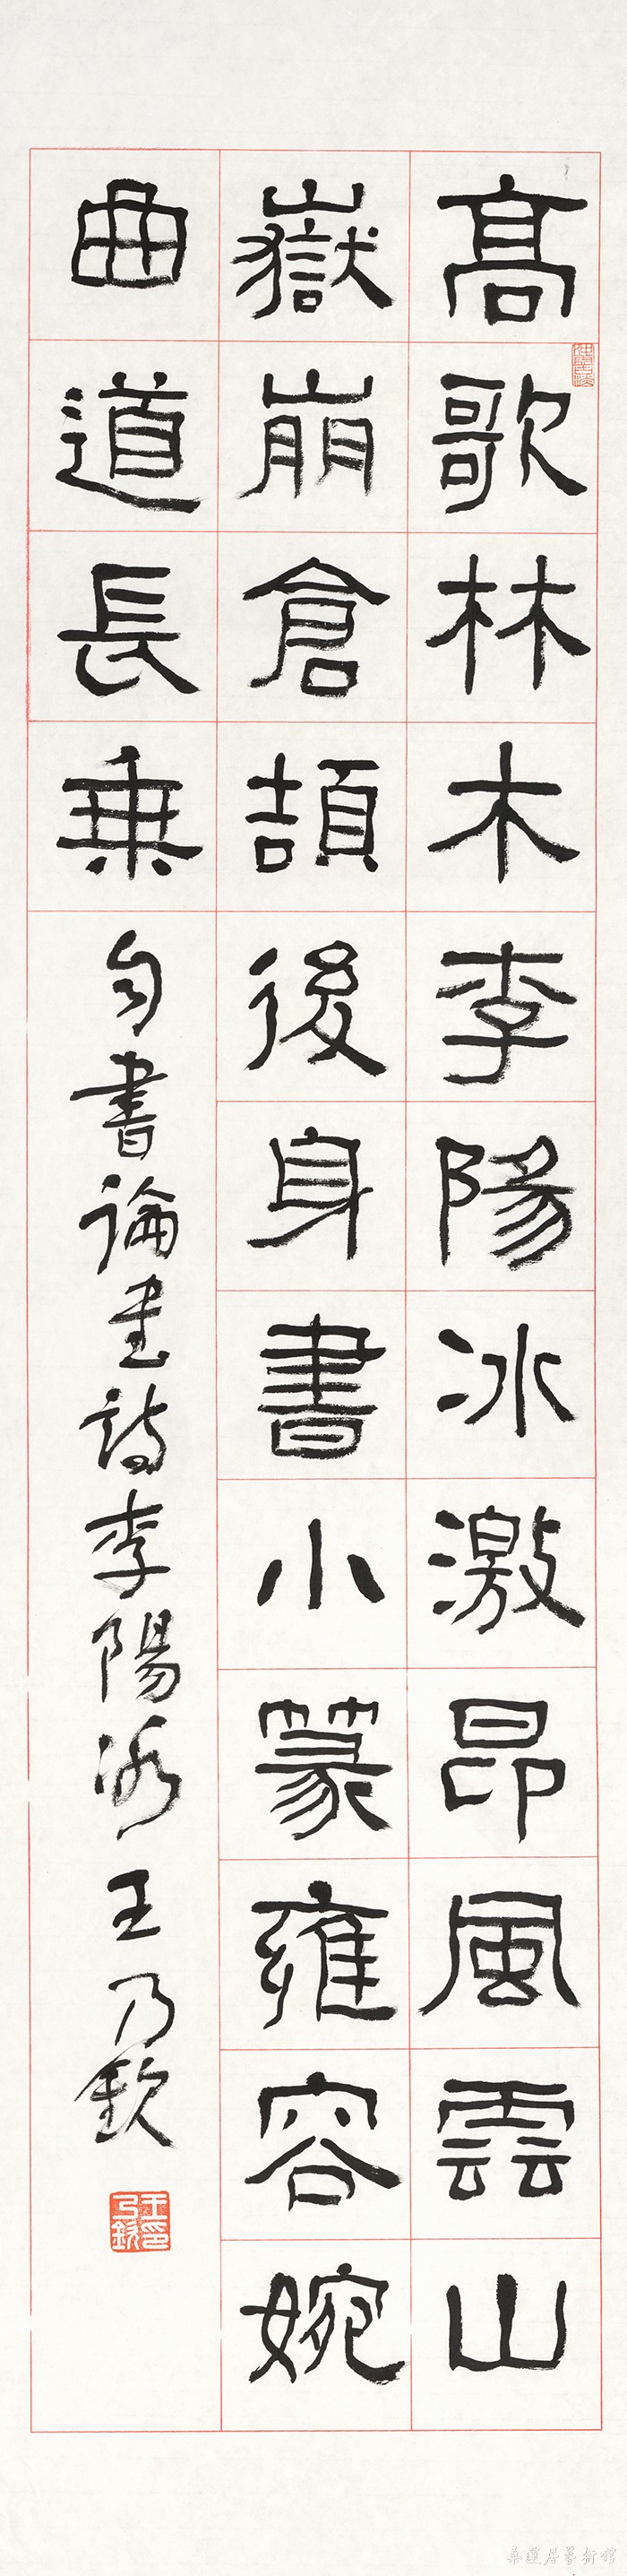 高歌林木李陽冰激昂風雲山
嶽崩倉頡後身書小篆雍容婉
曲道長乗
自書論書詩李陽冰王乃欽
王乃欽印